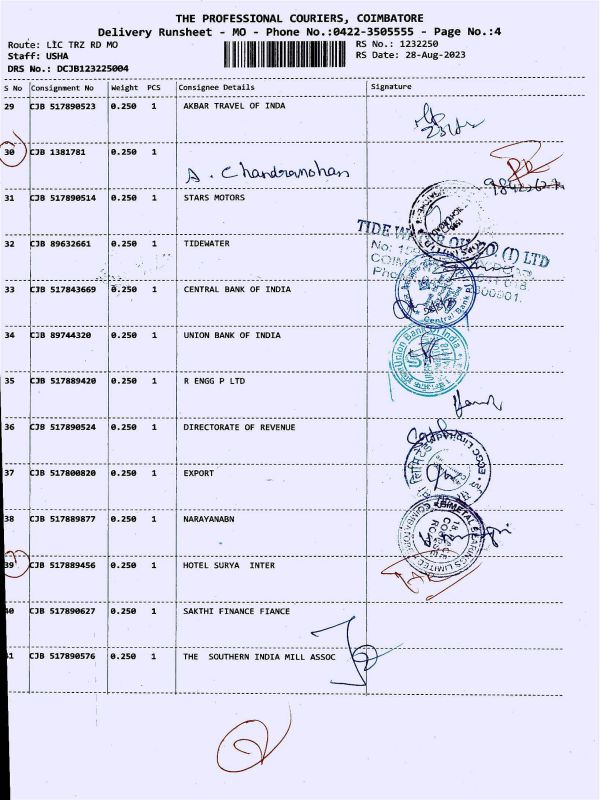 THE PROFESSIONAL COURIERS, COIMBATORE
Delivery Runsheet - MO - Phone No.:0422-3505555 - Page No.:4
Route: LIC TRZ RD MO
RS No.: 1232250
Staff: USHA
RS Date: 28-Aug-2023
DRS No.: DCJB123225004
S No Consignment No Weight PCS Consignee Details Signature
29 CJB 517890523 0.250 1 AKBAR TRAVEL OF INDA
30 CJB 1381781 0.250 1
A. Chandramohan
31 CJB 517890514 0.250 1 STARS MOTORS
32 CJB 89632661 0.250 1 TIDEWATER
TIDE WATER OIL CO. (I) LTD
33 CJB 517843669 0.250 1 CENTRAL BANK OF INDIA
Central Bank
34 CJB 89744320 0.250 1 UNION BANK OF INDIA
Union Bank of India
35 CJB 517889420 0.250 1 R ENGG P LTD
36 CJB 517890524 0.250 1 DIRECTORATE OF REVENUE
37 CJB 517800820 0.250 1 EXPORT
ECGC Limited
38 CJB 517889877 0.250 1 NARAYANABN
BIMETAL BEARINGS LIMITED
COIMBATORE
39 CJB 517889456 0.250 1 HOTEL SURYA INTER
40 CJB 517890627 0.250 1 SAKTHI FINANCE FIANCE
41 CJB 517890576 0.250 1 THE SOUTHERN INDIA MILL ASSOC